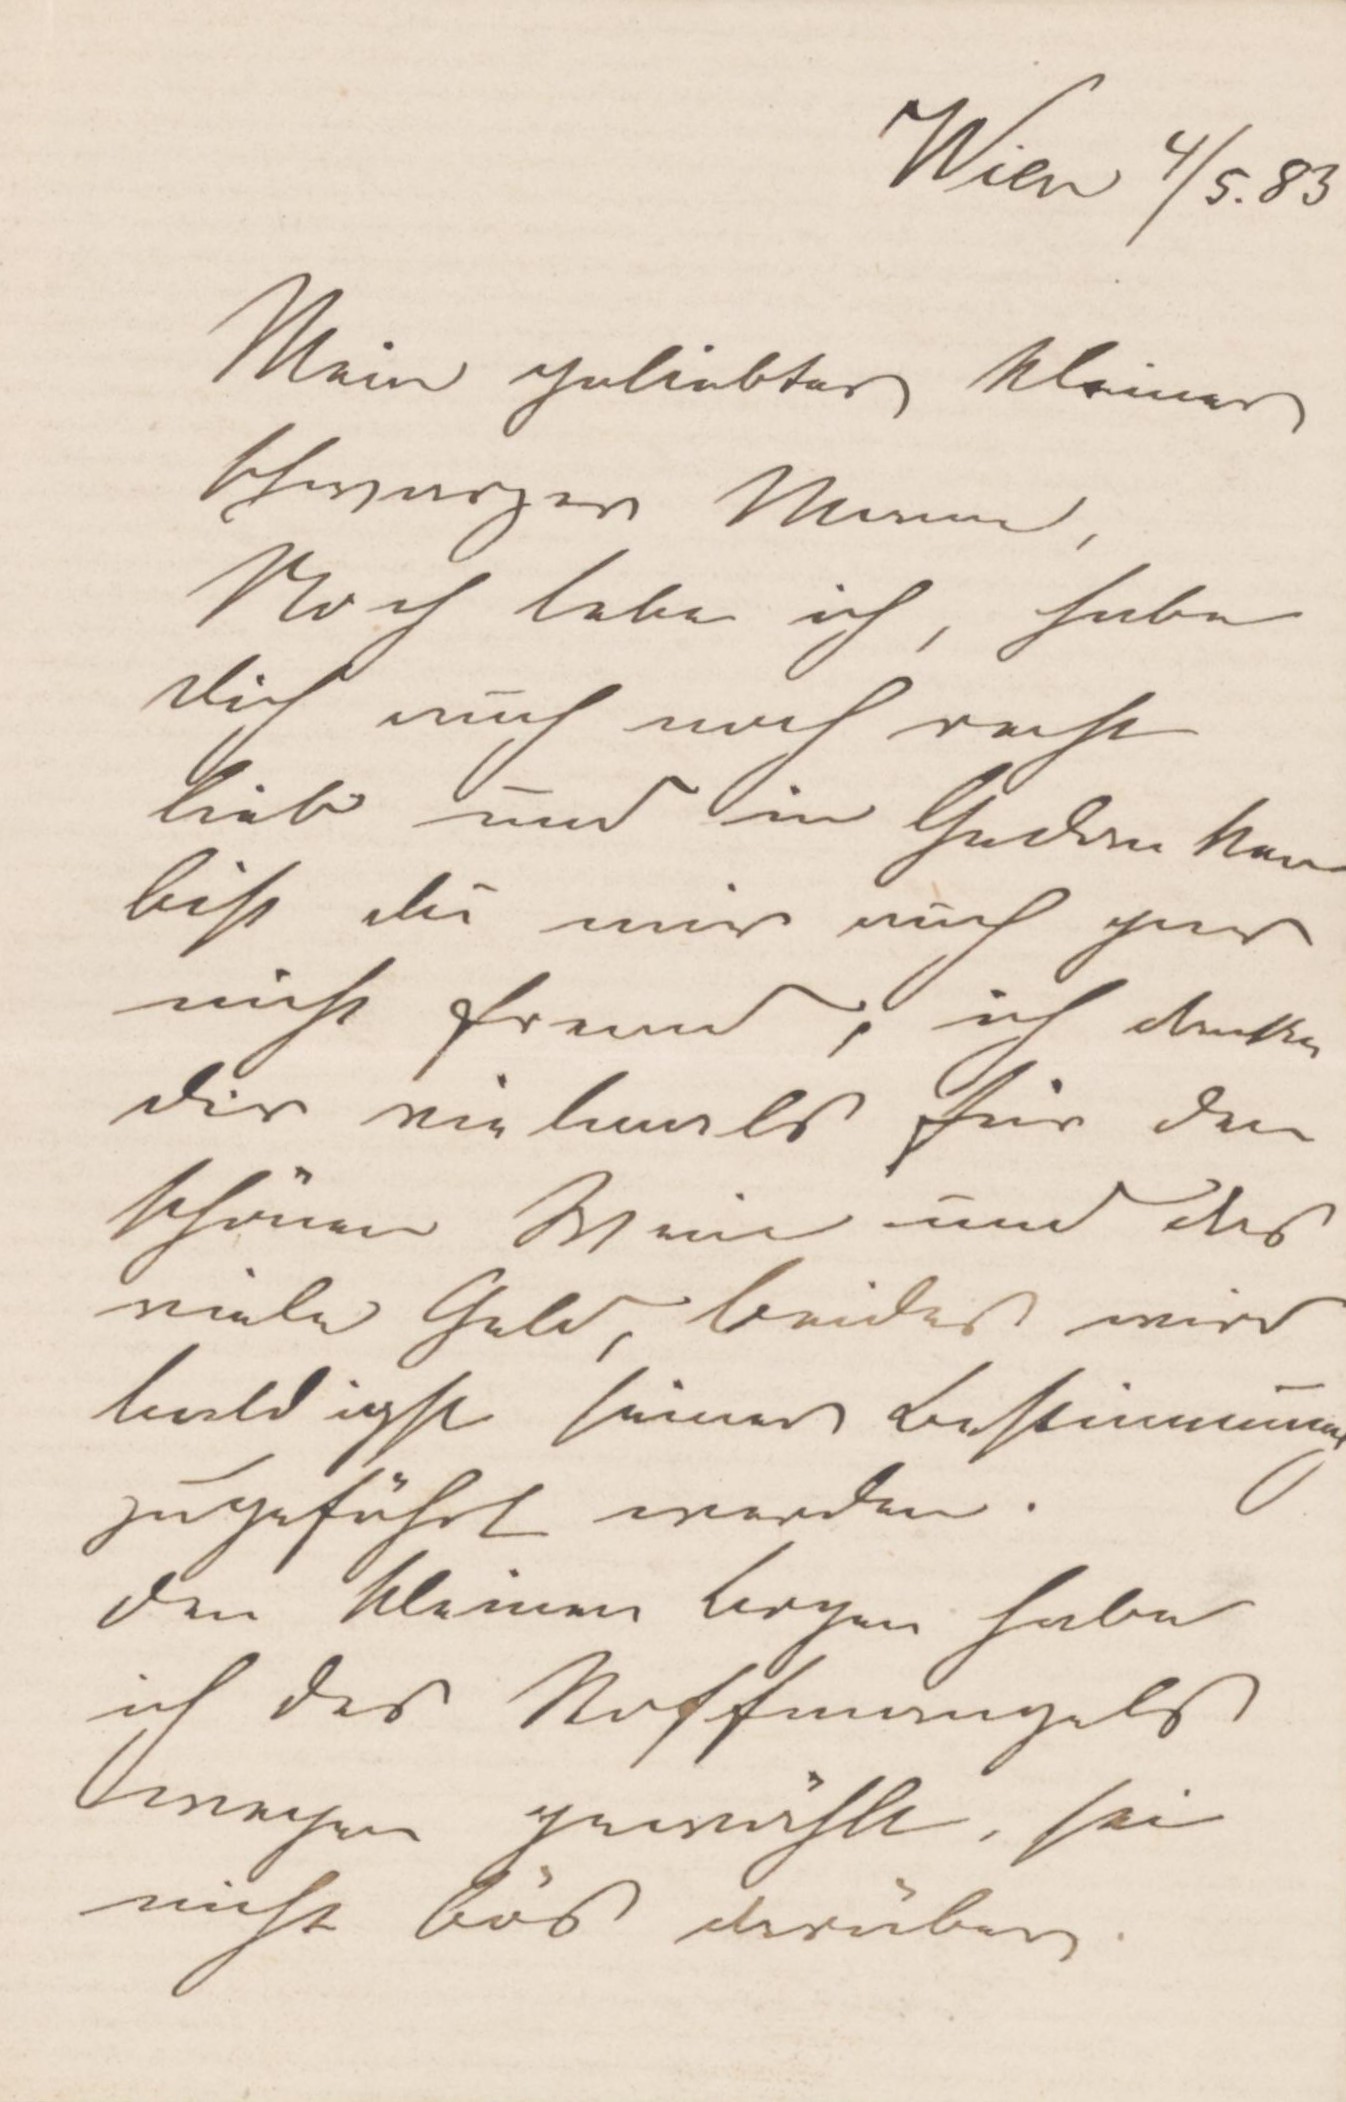 Wien 4/5. 83
Mein geliebter kleiner
schwarzer Mann,
Noch lebe ich, habe
dich auch noch recht
lieb und in Gedanken
bist du mir auch gar
nicht fremd; ich danke
dir vielmals für den
schönen Wein und das
viele Geld, beides wird
baldigst seiner Bestimmung
zugeführt werden.
den kleinen Bogen habe
ich des Stoffmangels
wegen gewählt, sei
nicht bös darüber.